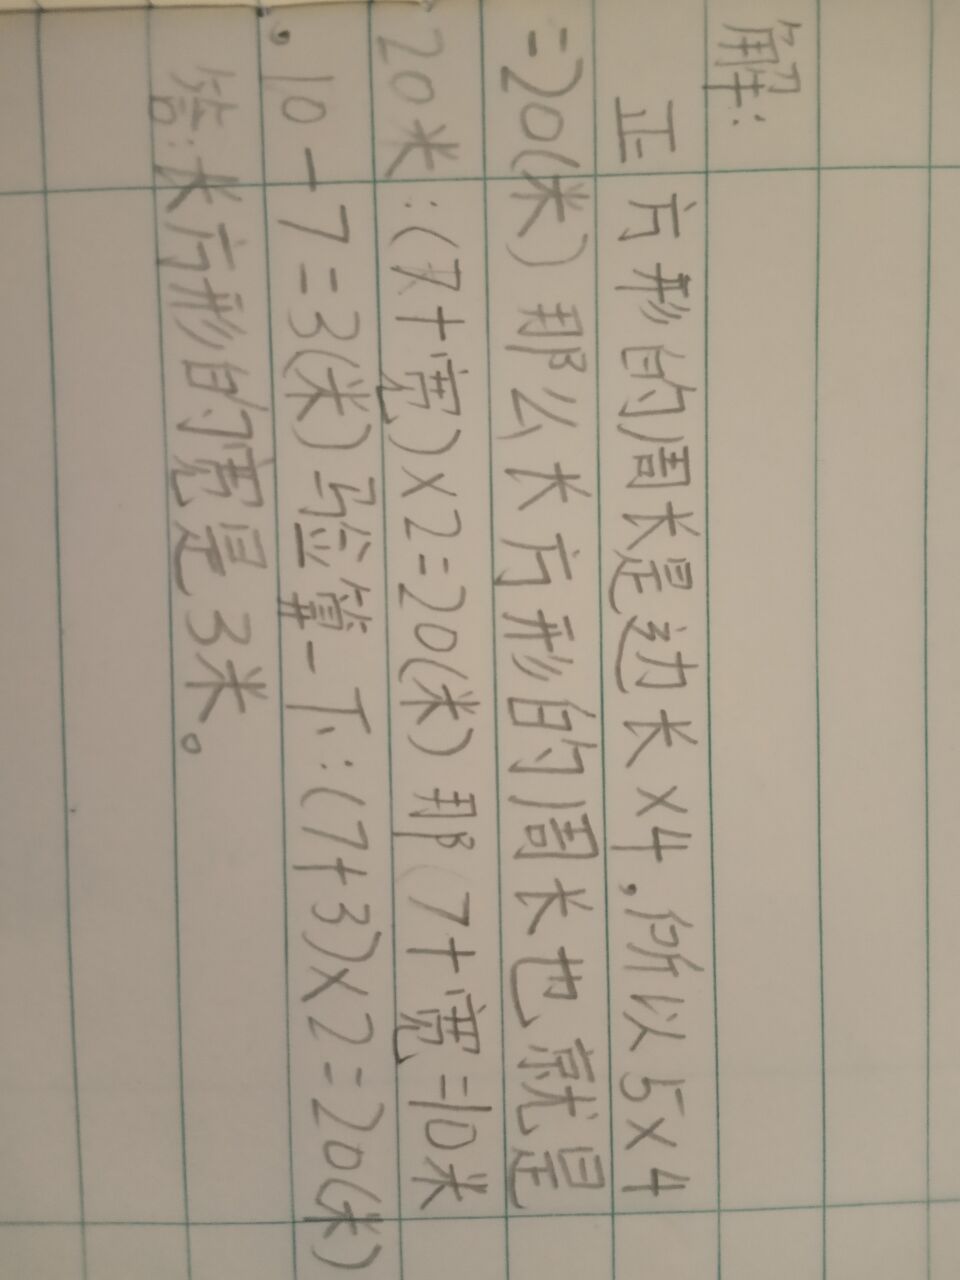 解:
正方形的周长是边长×4,所以5×4
=20(米)那么长方形的周长也就是
20米:(7+宽)×2=20(米)那(7+宽=10米
,10-7=3(米)验算一下:(7+3)×2=20(米)
答:长方形的宽是3米。